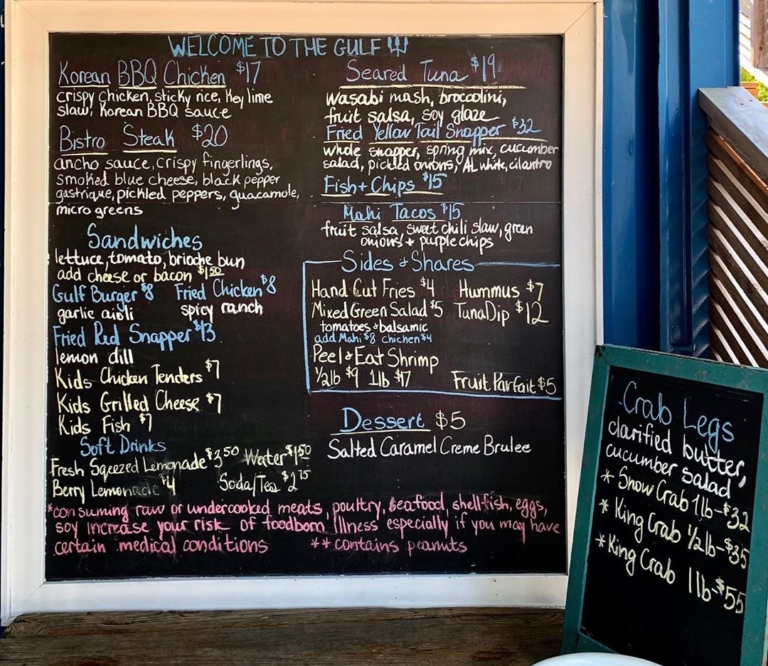 WELCOME TO THE GULF
Korean BBQ Chicken $17
crispy chicken, sticky rice, Key lime
slaw, Korean BBQ sauce
Bistro Steak $20
ancho sauce, crispy fingerlings,
smoked blue cheese, black pepper
gastrique, pickled peppers, guacamole,
micro greens
Sandwiches
lettuce, tomato, brioche bun
add cheese or bacon $1.50
Gulf Burger $8 Fried Chicken $8
garlic aioli spicy ranch
Fried Red Snapper $13
lemon dill
Kids Chicken Tenders $7
Kids Grilled Cheese $7
Kids Fish $7
Soft Drinks
Fresh Sqeezed Lemonade $3.50 Water $1.50
Berry Lemonade $4 Soda/Tea $2.75
Seared Tuna $19
wasabi mash, broccolini,
fruit salsa, soy glaze
Fried Yellow Tail Snapper $32
whole snapper, spring mix, cucumber
salad, pickled onions, AL white, cilantro
Fish + Chips $15
Mahi Tacos $15
fruit salsa, sweet chili slaw, green
onions + purple chips
Sides + Shares
Hand Cut Fries $4 Hummus $7
Mixed Green Salad $5 Tuna Dip $12
tomatoes + balsamic
add Mahi $8 chicken $4
Peel + Eat Shrimp
1/2lb $9 1lb $17 Fruit Parfait $5
Dessert $5
Salted Caramel Creme Brulee
*consuming raw or undercooked meats, poultry, seafood, shellfish, eggs,
soy increase your risk of foodborn illness especially if you may have
certain medical conditions **contains peanuts
Crab Legs
clarified butter,
cucumber salad
* Snow Crab 1lb - $32
* King Crab 1/2lb - $35
* King Crab 1lb - $55